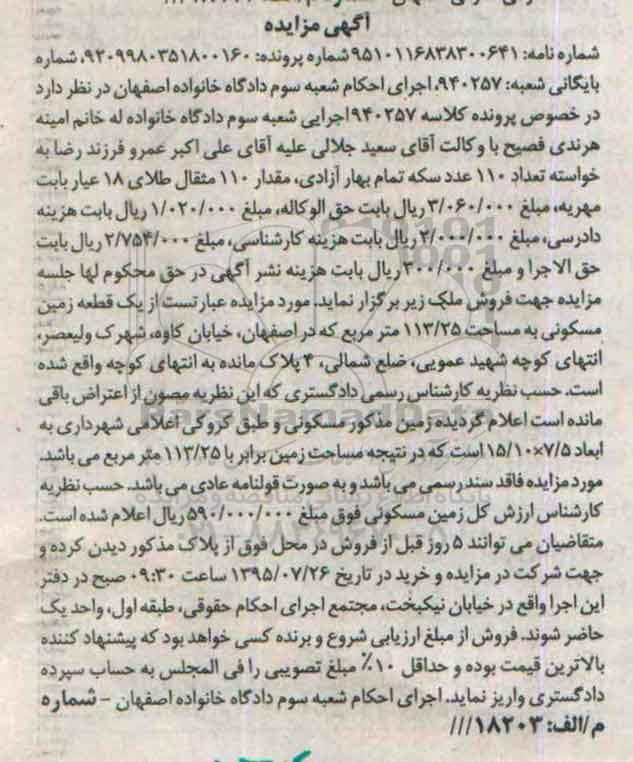 آگهی مزایده
شماره نامه: ۹۵۱۰۱۱۶۸۳۸۳۰۰۶۴۱ شماره پرونده: ۹۲۰۹۹۸۰۳۵۱۸۰۰۱۶۰، شماره
بایگانی شعبه: ۹۴۰۲۵۷، اجرای احکام شعبه سوم دادگاه خانواده اصفهان در نظر دارد
در خصوص پرونده کلاسه ۹۴۰۲۵۷ اجرایی شعبه سوم دادگاه خانواده له خانم امینه
هرندی فصیح با وکالت آقای سعید جلالی علیه آقای علی اکبر عمرو فرزند رضا به
خواسته تعداد ۱۱۰ عدد سکه تمام بهار آزادی، مقدار ۱۱۰ مثقال طلای ۱۸ عیار بابت
مهریه، مبلغ ۳/۰۶۰/۰۰۰ ریال بابت حق الوکاله، مبلغ ۱/۰۲۰/۰۰۰ ریال بابت هزینه
دادرسی، مبلغ ۲/۰۰۰/۰۰۰ ریال بابت هزینه کارشناسی، مبلغ ۲/۷۵۴/۰۰۰ ریال بابت
حق الاجرا و مبلغ ۳۰۰/۰۰۰ ریال بابت هزینه نشر آگهی در حق محکوم لها جلسه
مزایده جهت فروش ملک زیر برگزار نماید. مورد مزایده عبارتست از یک قطعه زمین
مسکونی به مساحت ۱۱۳/۲۵ متر مربع که در اصفهان، خیابان کاوه، شهرک ولیعصر،
انتهای کوچه شهید عمویی، ضلع شمالی، ۴ پلاک مانده به انتهای کوچه واقع شده
است. حسب نظریه کارشناس رسمی دادگستری که این نظریه مصون از اعتراض باقی
مانده است اعلام گردیده زمین مذکور مسکونی و طبق کروکی اعلامی شهرداری به
ابعاد ۷/۵×۱۵/۱۰ است که در نتیجه مساحت زمین برابر با ۱۱۳/۲۵ متر مربع می باشد.
مورد مزایده فاقد سند رسمی می باشد و به صورت قولنامه عادی می باشد. حسب نظریه
کارشناس ارزش کل زمین مسکونی فوق مبلغ ۵۹۰/۰۰۰/۰۰۰ ریال اعلام شده است.
متقاضیان می توانند ۵ روز قبل از فروش در محل فوق از پلاک مذکور دیدن کرده و
جهت شرکت در مزایده و خرید در تاریخ ۱۳۹۵/۰۷/۲۶ ساعت ۰۹:۳۰ صبح در دفتر
این اجرا واقع در خیابان نیکبخت، مجتمع اجرای احکام حقوقی، طبقه اول، واحد یک
حاضر شوند. فروش از مبلغ ارزیابی شروع و برنده کسی خواهد بود که پیشنهاد کننده
بالاترین قیمت بوده و حداقل ۱۰٪ مبلغ تصویبی را فی المجلس به حساب سپرده
دادگستری واریز نماید. اجرای احکام شعبه سوم دادگاه خانواده اصفهان - شماره
م/الف: ۱۸۲۰۳///
ParsNamadData
پایگاه اطلاع رسانی مناقصه و مزایده